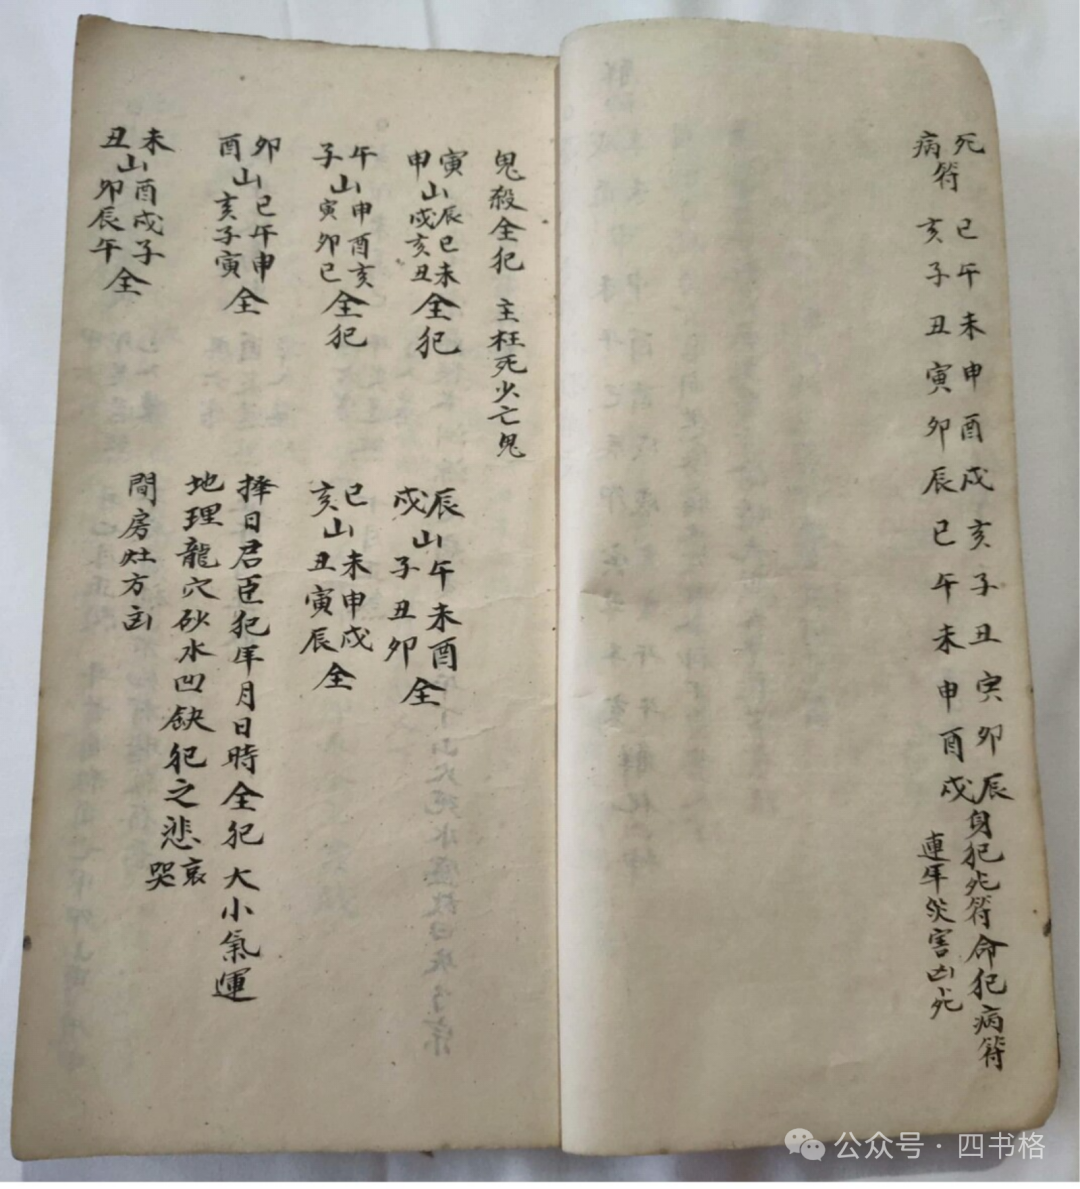 死 巳午未申酉戌亥子丑寅卯辰身犯死符命犯病符
病符 亥子丑寅卯辰巳午未申酉戌 連年災害凶死
鬼殺全犯 主枉死少亡鬼
寅申山辰巳未戌亥丑全犯
午子山申酉亥寅卯巳全犯
卯酉山巳午申亥子寅全
未丑山酉戌子卯辰午全
辰戌山午未酉子丑卯全
巳亥山未申戌丑寅辰全
擇日君臣犯年月日時全犯大小氣運
地理龍穴砂水凹缺犯之悲哀哭
間房灶方凶
公众号·四书格